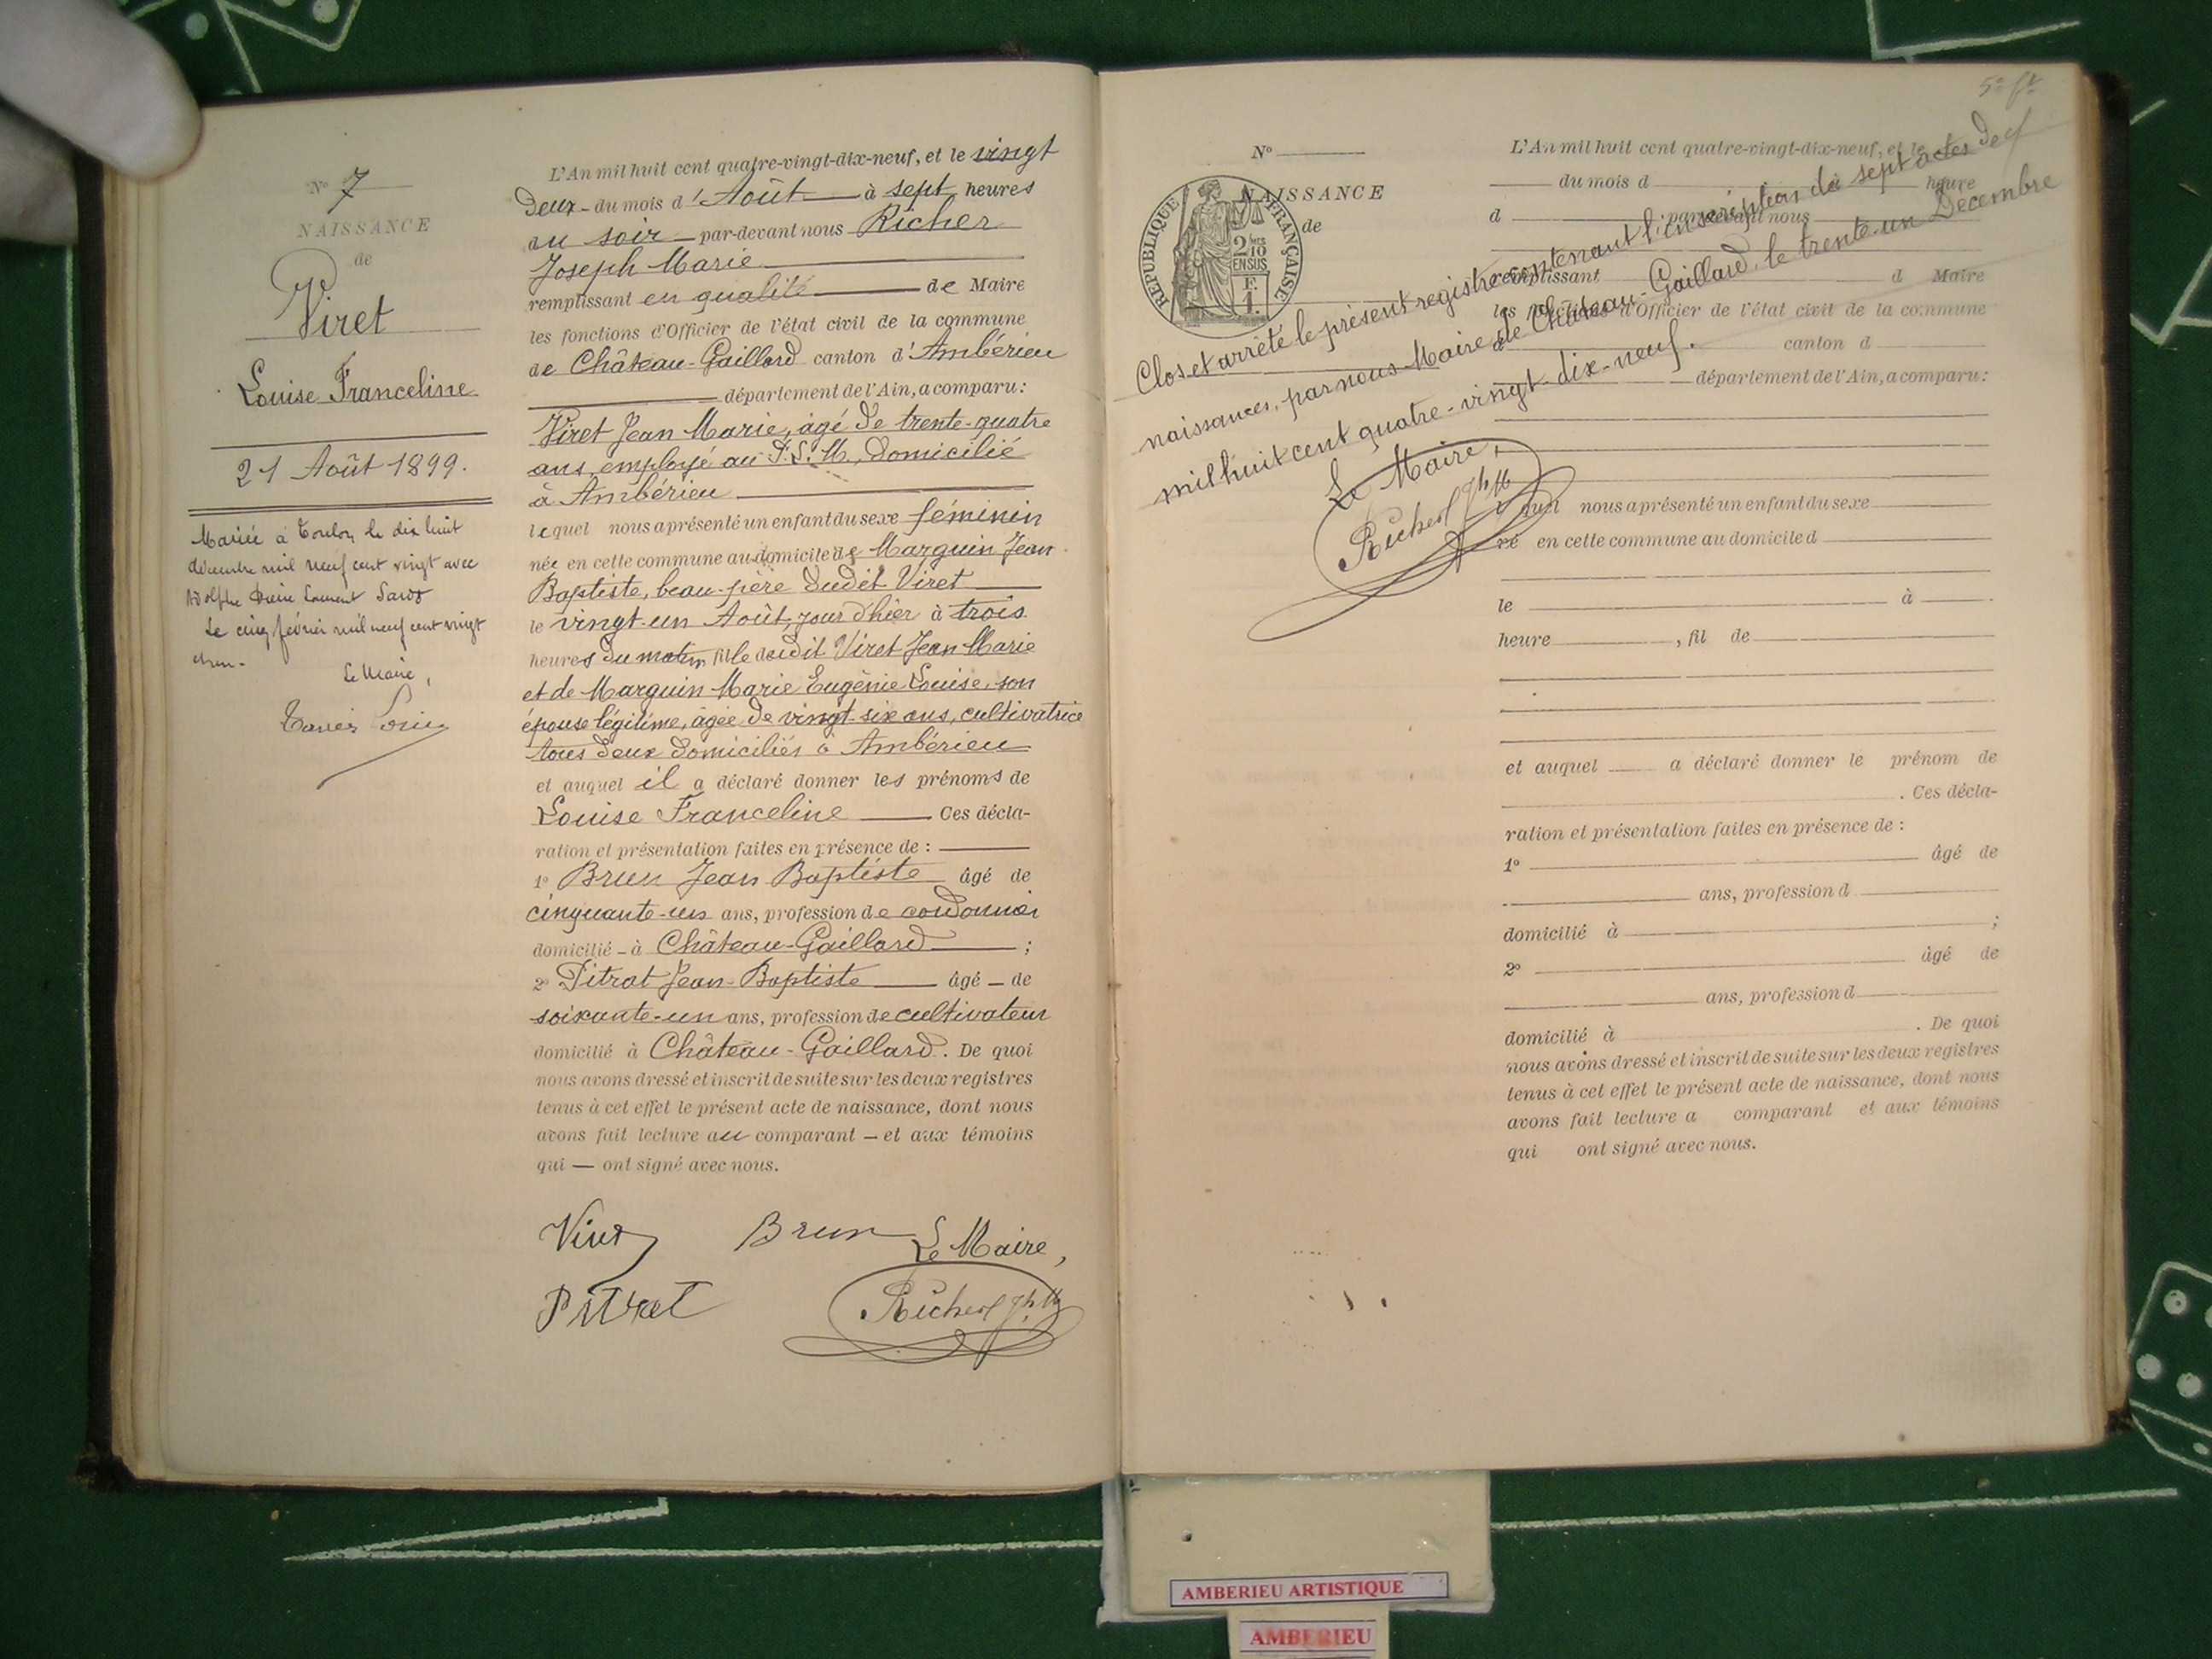 Nº 7
NAISSANCE
de
Viret
Louise Franceline
21 Août 1899.
Mariée à Toulon le dix huit
décembre mil neuf cent vingt avec
Adolphe Pierre Laurent
Le cinq février mil neuf cent vingt
Le Maire,
L'An mil huit cent quatre-vingt-dix-neuf, et le vingt
deux - du mois d'Août à sept heures
du soir par-devant nous Richer
Joseph Marie
remplissant en qualité de Maire
les fonctions d'Officier de l'état civil de la commune
de Château-Gaillard canton d'Ambérieu
département de l'Ain, a comparu:
Viret Jean Marie, âgé de trente-quatre
ans, employé au P.L.M., domicilié
à Ambérieu
lequel nous a présenté un enfant du sexe féminin
née en cette commune au domicile de Marguin Jean
Baptiste, beau-père dudit Viret
le vingt-un Août, jour d'hier à trois
heures du matin fille dudit Viret Jean Marie
et de Marguin Marie Eugénie Louise, son
épouse légitime, âgée de vingt-six ans, cultivatrice
tous deux domiciliés à Ambérieu
et auquel il a déclaré donner les prénoms de
Louise Franceline Ces décla-
ration et présentation faites en présence de :
1º Brun Jean Baptiste âgé de
cinquante-un ans, profession de cordonnier
domicilié - à Château-Gaillard ;
2º Pitrat Jean-Baptiste âgé - de
soixante-un ans, profession de cultivateur
domicilié à Château-Gaillard. De quoi
nous avons dressé et inscrit de suite sur les deux registres
tenus à cet effet le présent acte de naissance, dont nous
avons fait lecture au comparant - et aux témoins
qui — ont signé avec nous.
Viret Brun Le Maire,
Pitrat Richer Jh M
Nº
NAISSANCE
de
RÉPUBLIQUE FRANÇAISE
2/10
EN SUS
F.
1.
L'An mil huit cent quatre-vingt-dix-neuf, et le
du mois d à heure
d par-devant nous
remplissant d Maire
les fonctions d'Officier de l'état civil de la commune
d canton d
département de l'Ain, a comparu:
Clos et arrêté le présent registre contenant l'inscription de sept actes de
naissances, par nous Maire de Château-Gaillard, le trente-un Décembre
mil huit cent quatre-vingt-dix-neuf.
Le Maire,
Richer Jh M
quel nous a présenté un enfant du sexe
né en cette commune au domicile d
le à
heure , fil de
et auquel a déclaré donner le prénom de
. Ces décla-
ration et présentation faites en présence de :
1º âgé de
ans, profession d
domicilié à ;
2º âgé de
ans, profession d
domicilié à . De quoi
nous avons dressé et inscrit de suite sur les deux registres
tenus à cet effet le présent acte de naissance, dont nous
avons fait lecture a comparant et aux témoins
qui ont signé avec nous.
AMBERIEU ARTISTIQUE
AMBERIEU